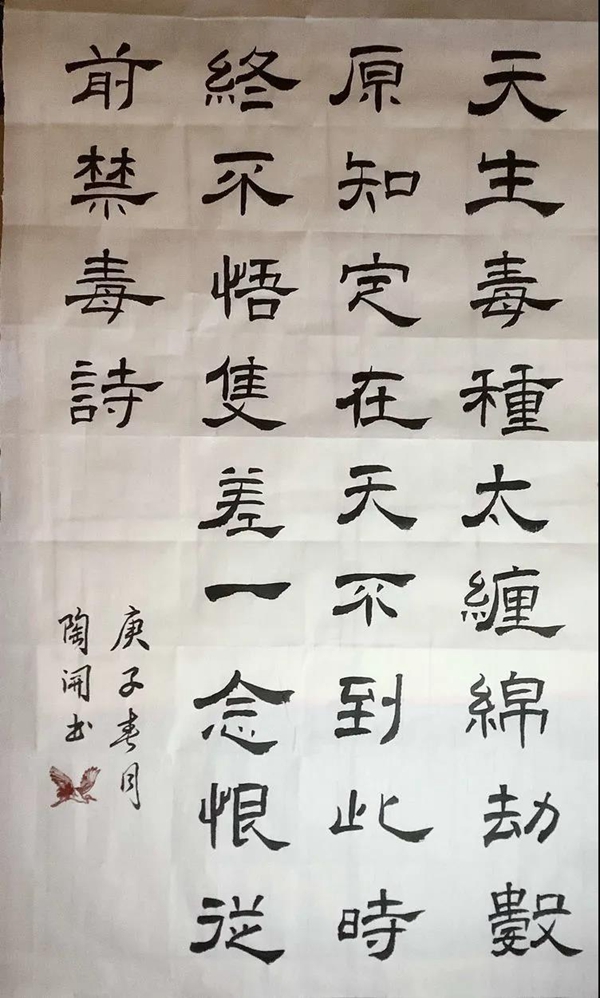 天生毒種太纏綿劫數
原知定在天不到此時
終不悟隻差一念恨從
前禁毒詩
庚子春月
陶開书